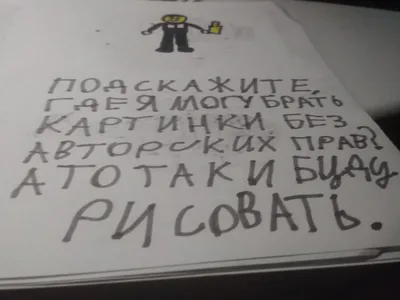 ПОДСКАЖИТЕ,
ГДЕ Я МОГУ БРАТЬ
КАРТИНКИ БЕЗ
АВТОРСКИХ ПРАВ?
А ТО ТАК И БУДУ
РИСОВАТЬ.